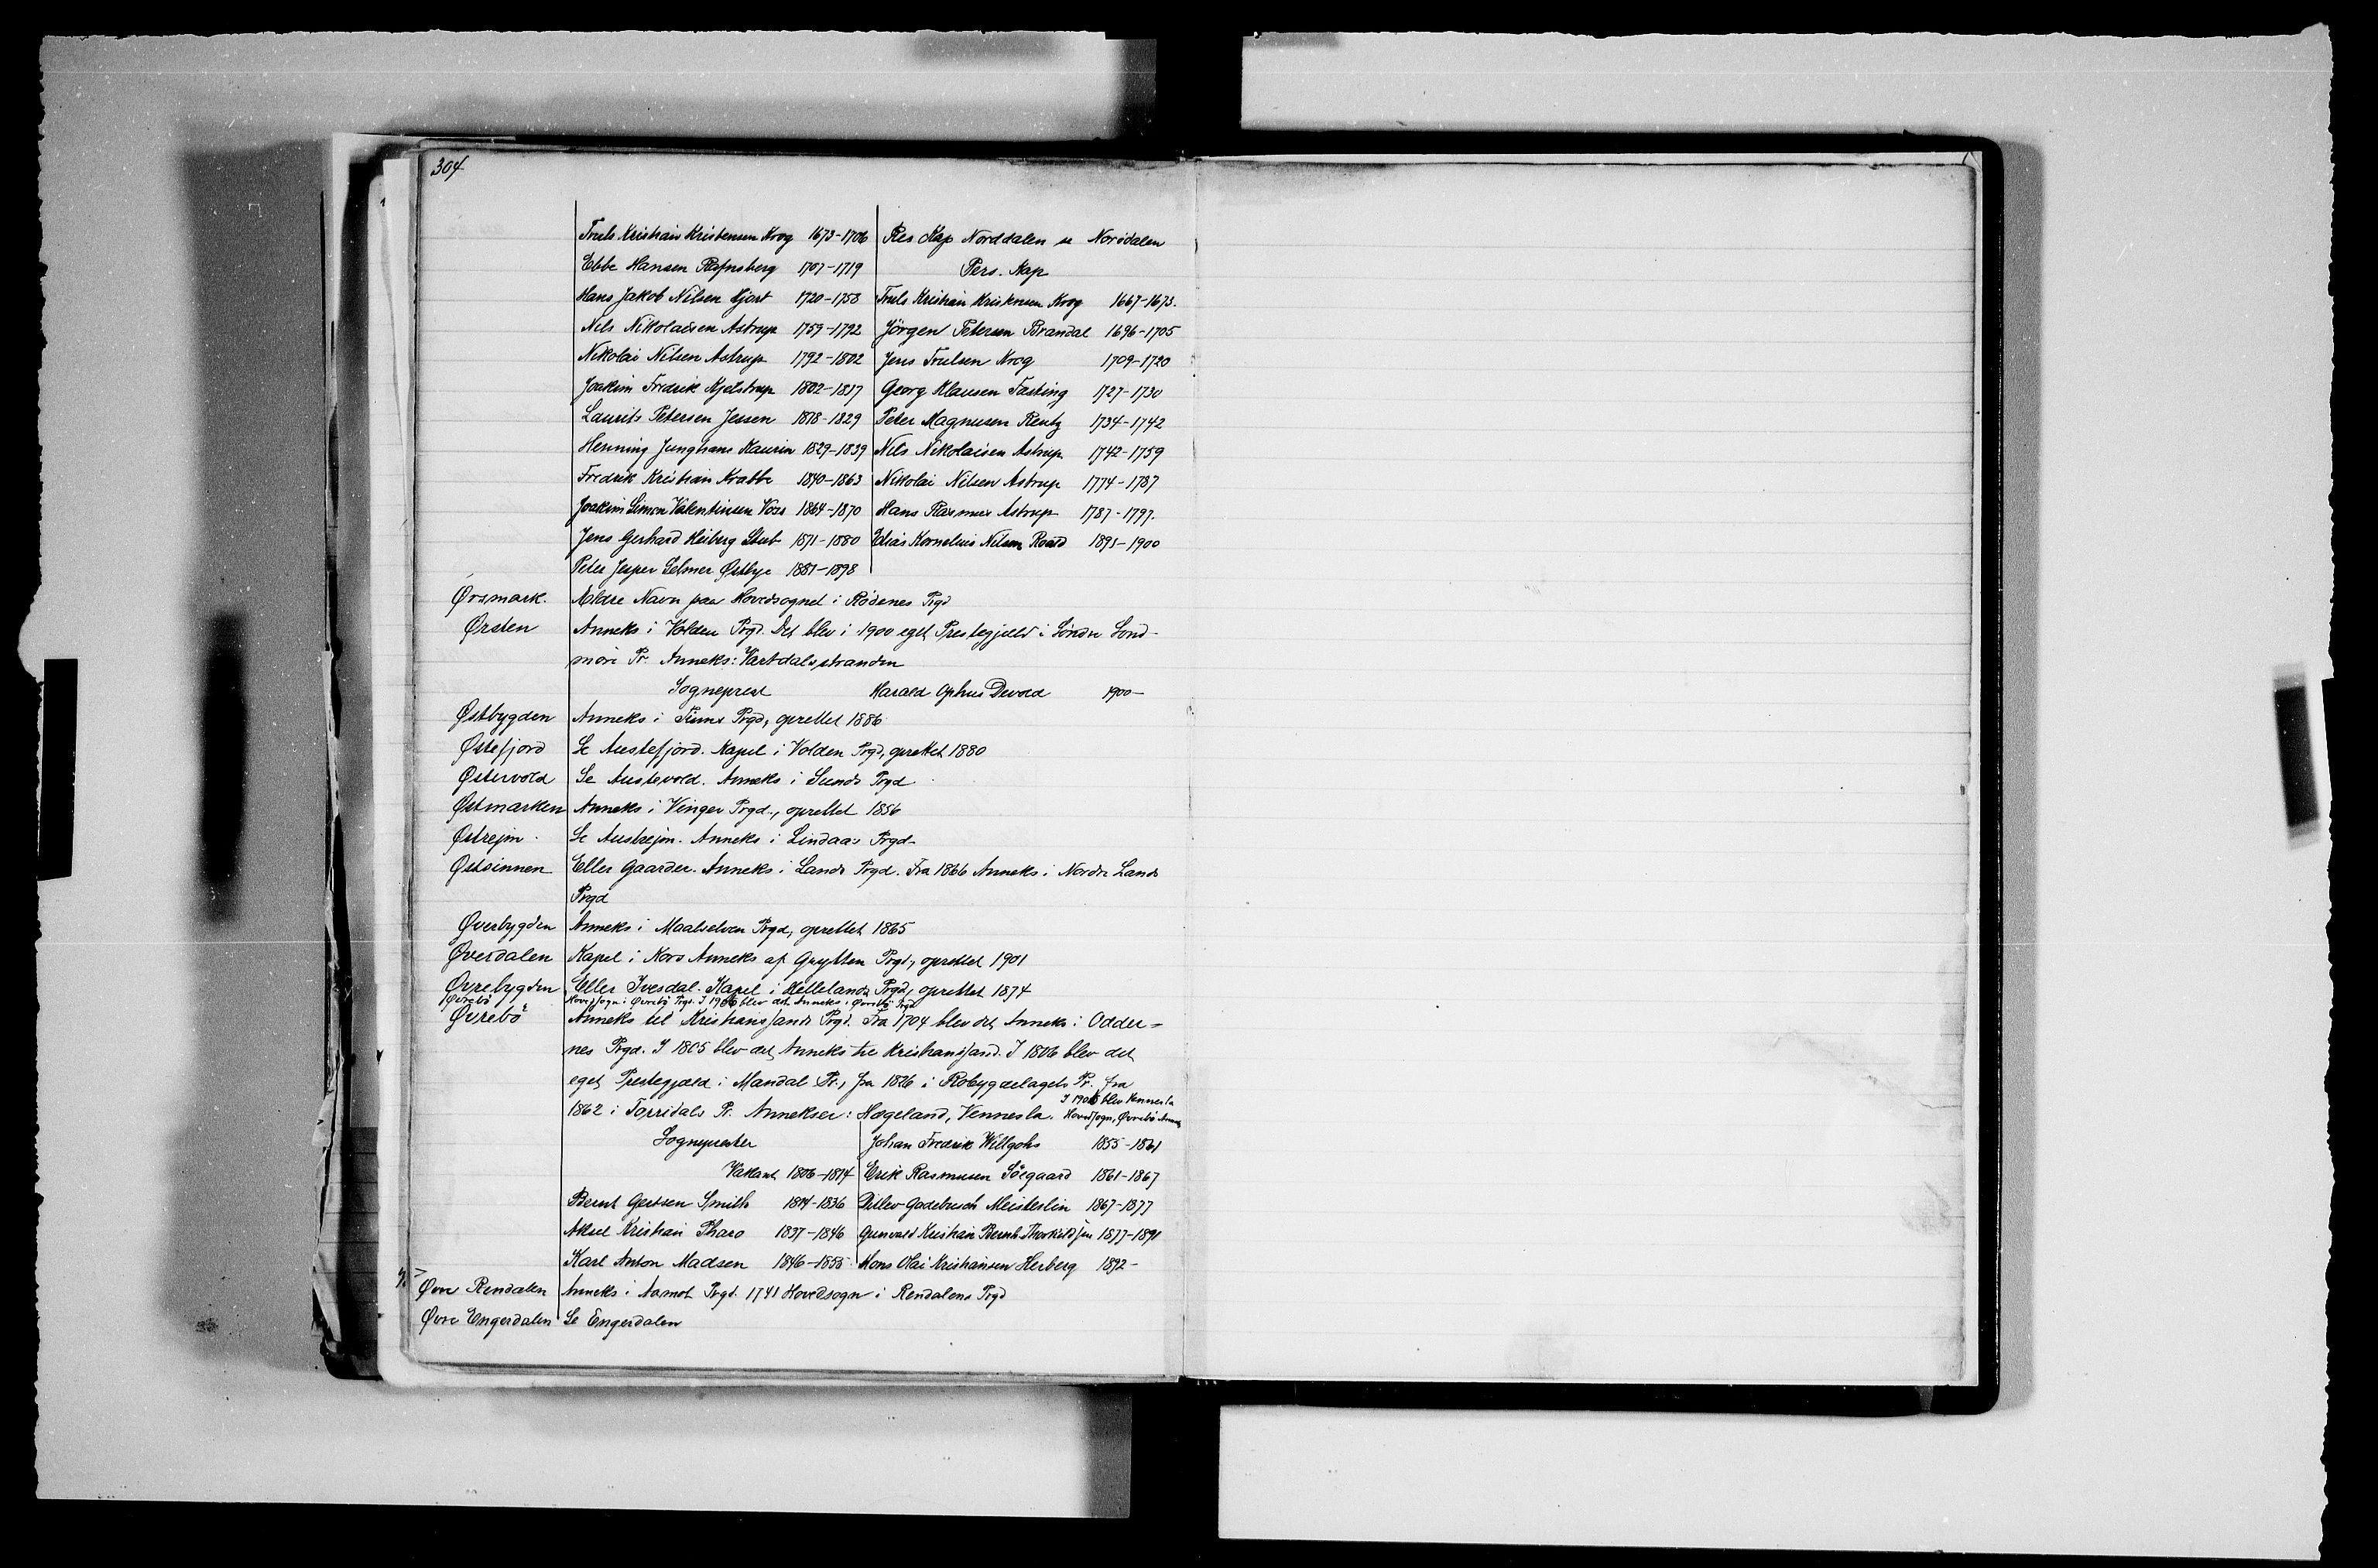 304
Truls Kristian Kristensen Krog 1673-1706
Ebbe Hansen Rafnsberg 1707-1719
Hans Jakob Nilsen Hjort 1720-1758
Nils Nikolaisen Astrup 1759-1792
Nikolai Nilsen Astrup 1792-1802
Joakim Fredrik Kjelstrup 1802-1817
Laurits Petersen Jessen 1818-1829
Henning Junghans Kaurin 1829-1839
Fredrik Kristian Krabbe 1840-1863
Joakim Simon Valentinsen Voss 1864-1870
Jens Gerhard Heiberg Stub 1871-1880
Peter Jesper Selmer Østbye 1881-1898
Res Kap Norddalen se Norddalen
Pers. Kap
Truls Kristian Kristensen Krog 1667-1673.
Jörgen Petersen Brandal 1696-1705
Jens Trulsen Krog 1709-1720
Georg Klausen Fasting 1727-1730
Peter Magnusen Rentz 1734-1742
Nils Nikolaisen Astrup 1742-1759
Nikolai Nilsen Astrup 1774-1787
Hans Rasmus Astrup 1787-1797.
Elias Kornelius Nilsen Roald 1895-1900
Ørsmark. Ældre Navn paa Hovedsognet i Rödenes Prgd
Ørsten Anneks i Volden Prgd. Det blev i 1900 eget Prestegjeld i Söndre Sönd-
möre Pr. Anneks: Vartdalsstranden
Sogneprest Harald Ophus Devold 1900-
Østbygden Anneks i Finne Prgd, oprettet 1886
Østefjord Se Austefjord. Kapel i Volden Prgd, oprettet 1880
Østervold Se Austevold. Anneks i Sunds Prgd
Østmarken Anneks i Vinger Prgd., oprettet 1856
Østrejm. Se Austrejm. Anneks i Lindaas Prgd-
Østsinnen Eller Gaarder. Anneks i Lands Prgd. Fra 1866 Anneks i Nordre Lands
Prgd
Øverbygden Anneks i Maalselven Prgd, oprettet 1865
Øverdalen Kapel i Kors Anneks af Grytten Prgd, oprettet 1901
Øvrebygden Eller Ivesdal. Kapel i Hellelands Prgd, oprettet 1874
Øvrebö Hovedsogn i Øvrebö Prgd. I 1906 blev det Anneks i Øvrebö Prgd
Øvrebö Anneks til Kristiansjands Prgd. Fra 1704 blev det Anneks i Odder=
nes Prgd. I 1805 blev det Anneks til Kristiansjand. I 1806 blev det
eget Prestegjæld i Mandal Pr., fra 1826 i Robygdelagets Pr. fra
1862 i Torridals Pr. Annekser: Hægeland, Vennesla. I 1906 blev Vennesla
Hovedsogn, Øvrebö Anneks
Sogneprester
Vakant 1806-1814
Bernt Gertsen Smith 1814-1836
Aksel Kristian Tharo 1837-1846
Karl Anton Madsen 1846-1855
Johan Fredrik Willgohs 1855-1861
Erik Rasmusen Söegaard 1861-1867
Ditlev Gadebusch Meisterlin 1867-1877
Gunvald Kristian Bernh. Thorkildsen 1877-1891
Mons Olai Kristiansen Herberg 1892-
Øvre Rendalen Anneks i Aamot Prgd. 1741 Hovedsogn i Rendalens Prgd
Øvre Engerdalen Se Engerdalen